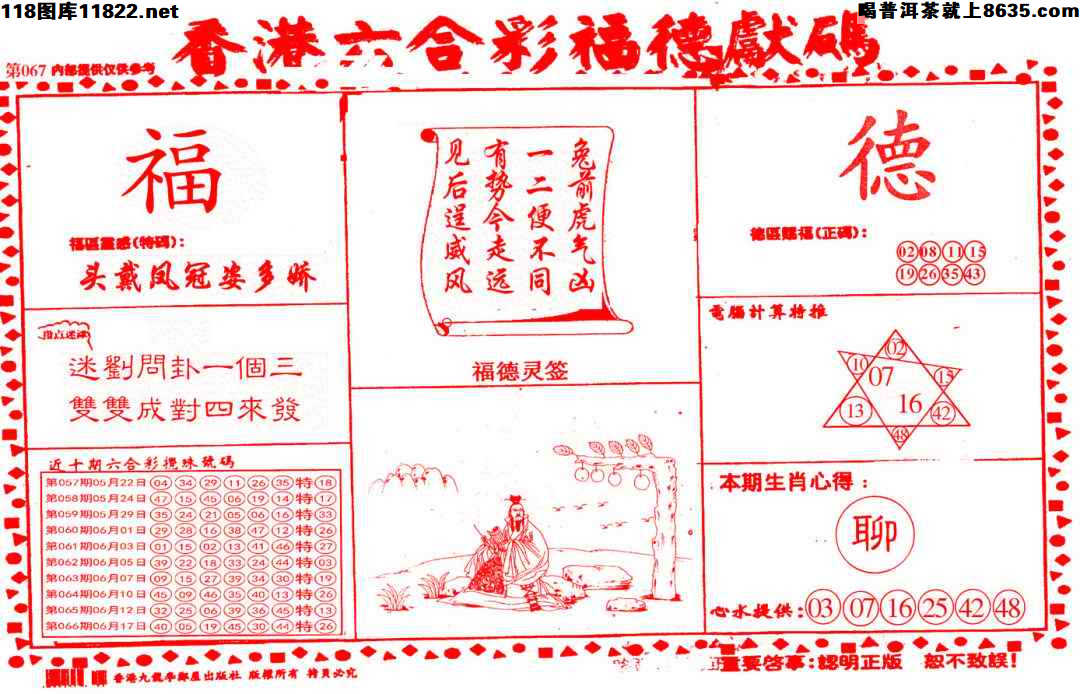 118图库11822.net
喝普洱茶就上8635.com
香港六合彩福德獻碼
第067 内部提供仅供参考
福
福區靈感(特碼):
头戴凤冠姿多娇
迷劉問卦一個三
雙雙成對四來發
近十期六合彩攪珠號碼
第057期05月22日 04 34 29 11 26 35 特 18
第058期05月24日 47 15 45 06 19 14 特 17
第059期05月29日 35 24 21 05 06 16 特 33
第060期06月01日 29 28 16 38 47 12 特 26
第061期06月03日 01 15 02 13 41 46 特 27
第062期06月05日 39 22 18 33 24 44 特 03
第063期06月07日 09 15 27 39 34 30 特 19
第064期06月10日 45 09 46 35 40 13 特 26
第065期06月12日 32 25 06 39 36 45 特 13
第066期06月17日 40 05 19 45 30 44 特 26
兔前虎气凶
一二便不同
有势今走远
见后逞威风
福德灵签
德
德區賜福(正碼):
02 08 11 15
19 26 35 43
電腦計算特推
02
10 07 15
13 16 42
48
本期生肖心得:
聊
心水提供: 03 07 16 25 42 48
重要啓事:認明正版 恕不致誤!
香港九龍李鄰屋出版社 版權所有 拷貝必究